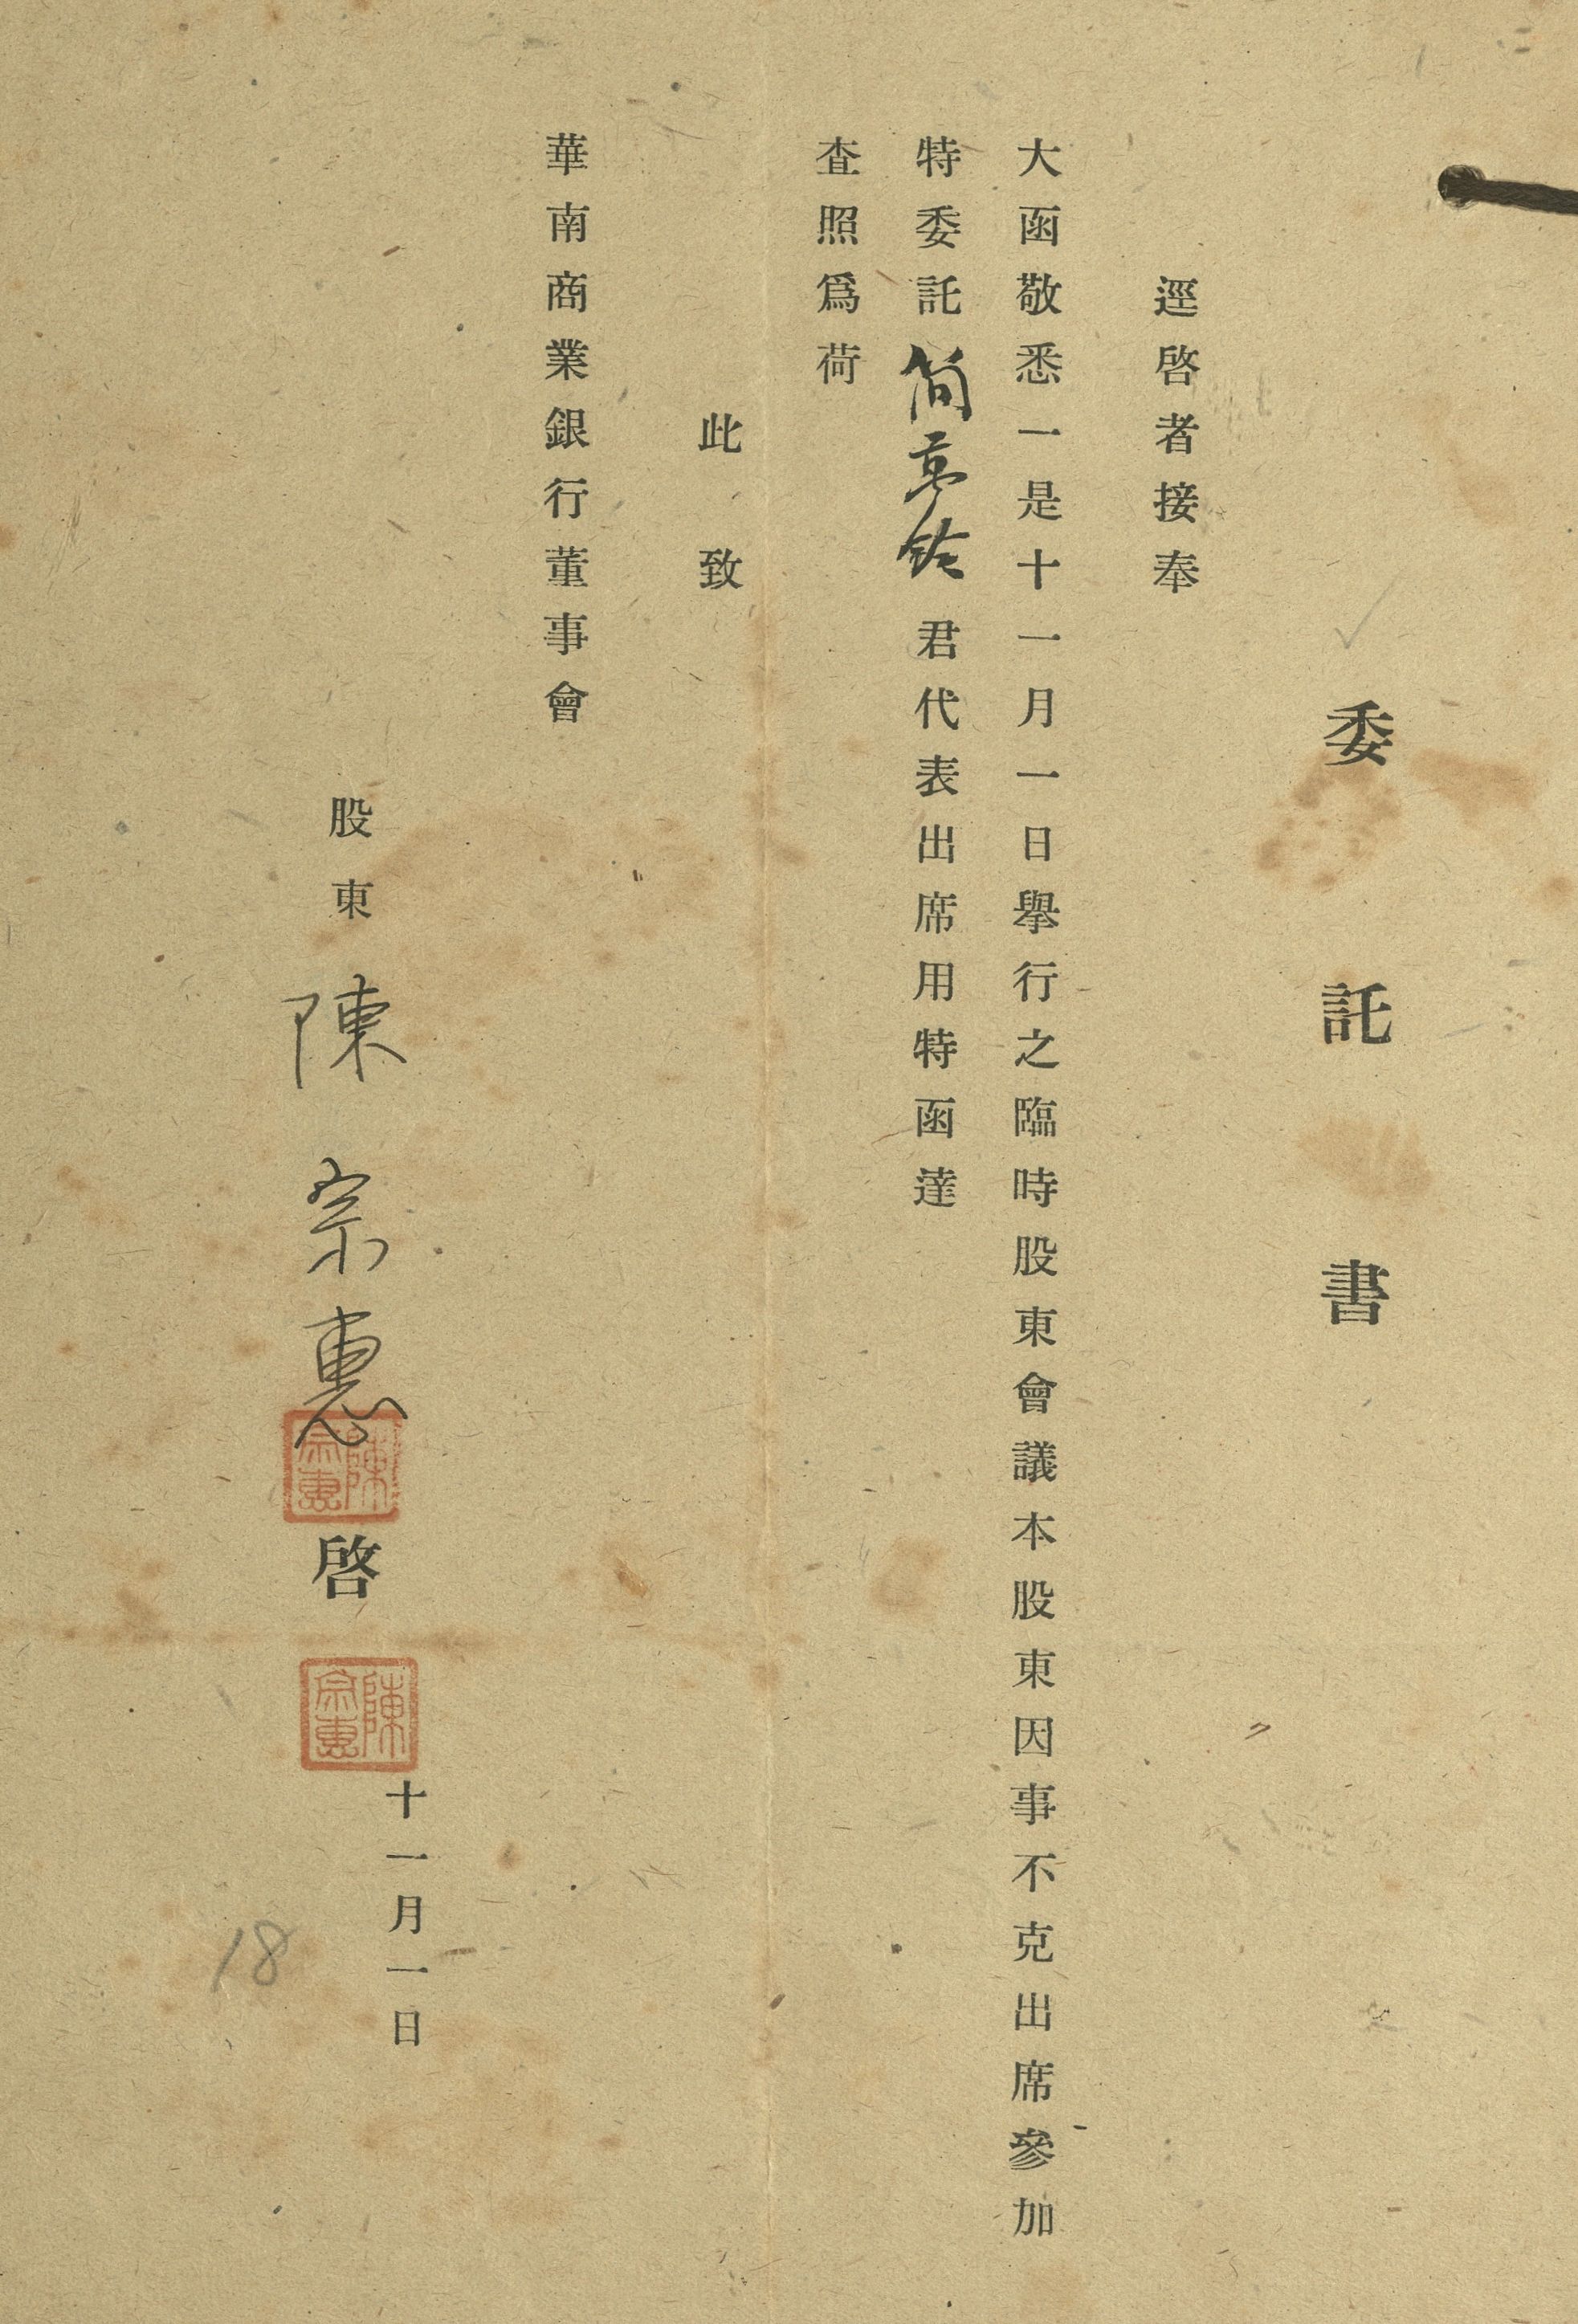 委託書
逕啓者接奉
大函敬悉一是十一月一日舉行之臨時股東會議本股東因事不克出席參加
特委託簡鈴君代表出席用特函達
査照爲荷
此致
華南商業銀行董事會
股東 陳宗惠 啓
陳宗惠
陳宗惠
十一月一日
18